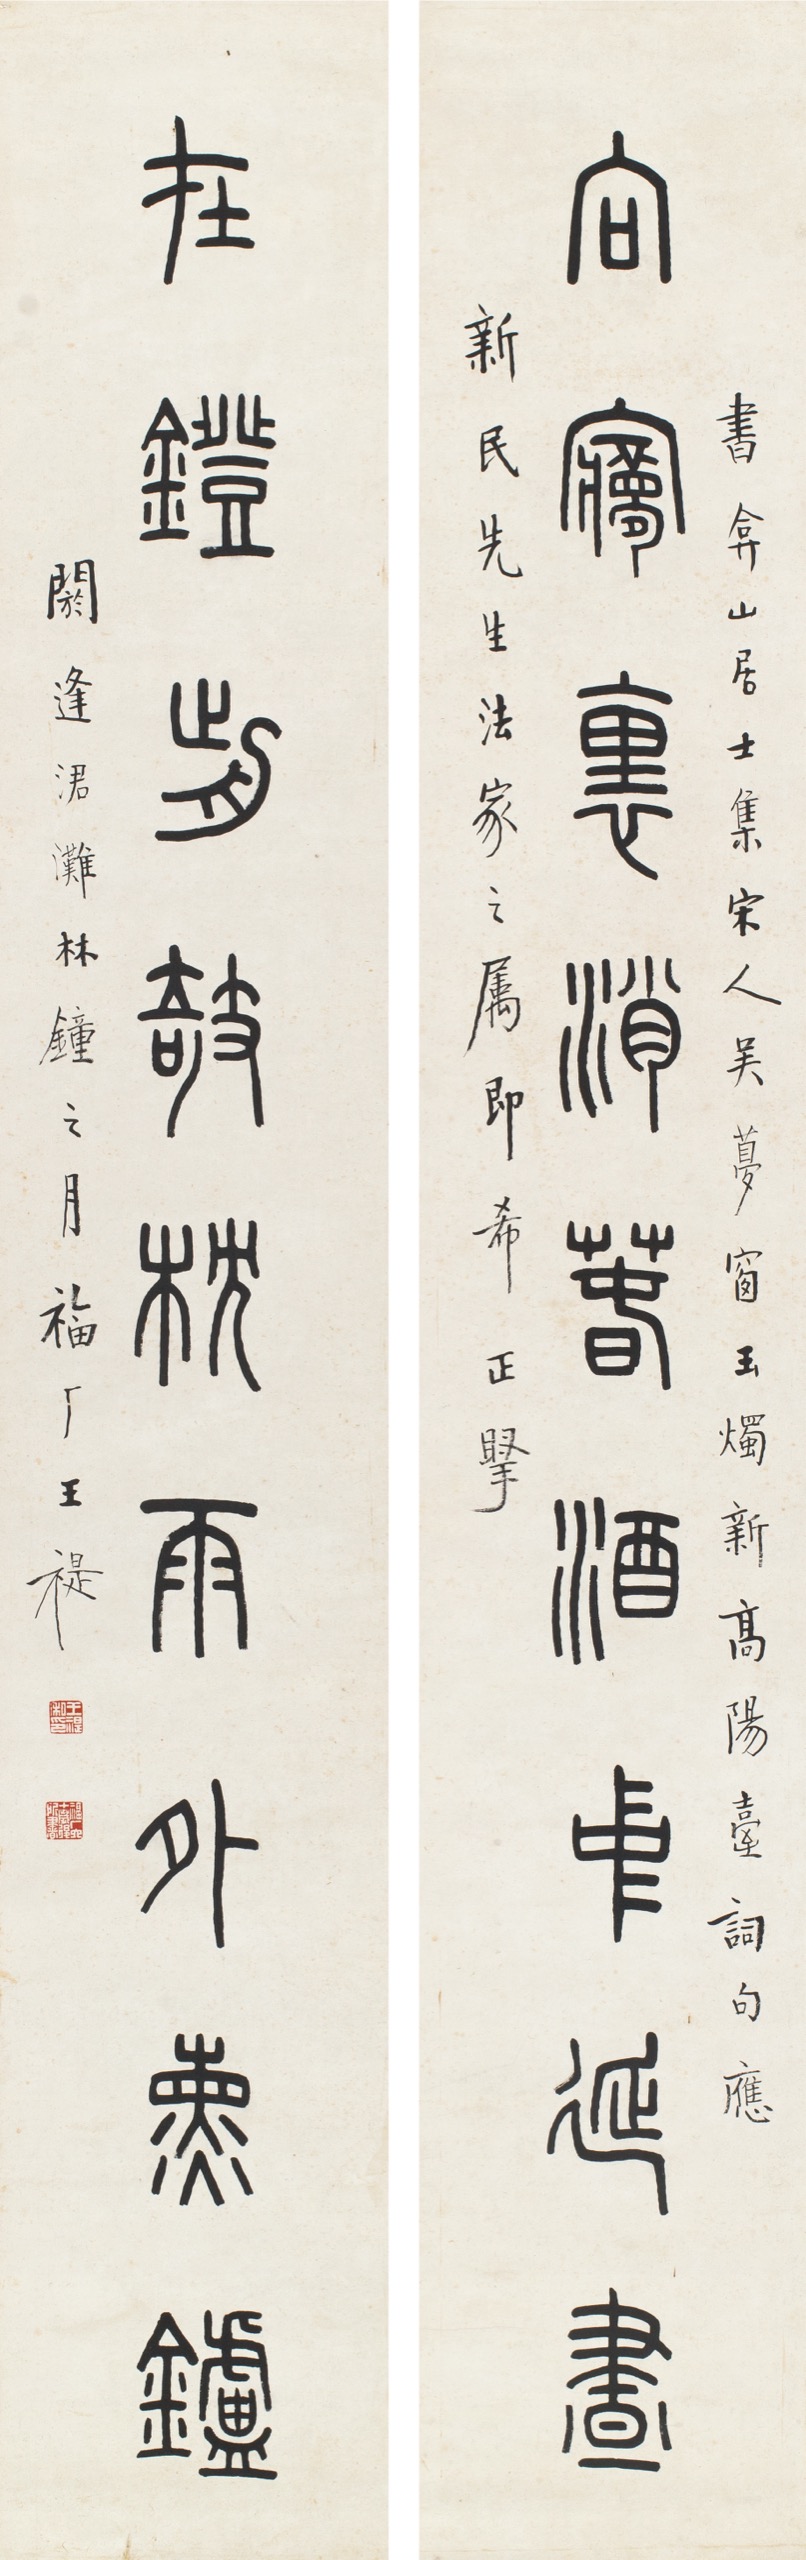 書弇山居士集宋人吳夢窗玉燭新高陽臺詞句應
向㝱裏消春酒中延晝
新民先生法家之屬即希正掔
在鐙歬敧枕雨外熏鑪
閼逢涒灘林鐘之月福厂王禔
王禔私印